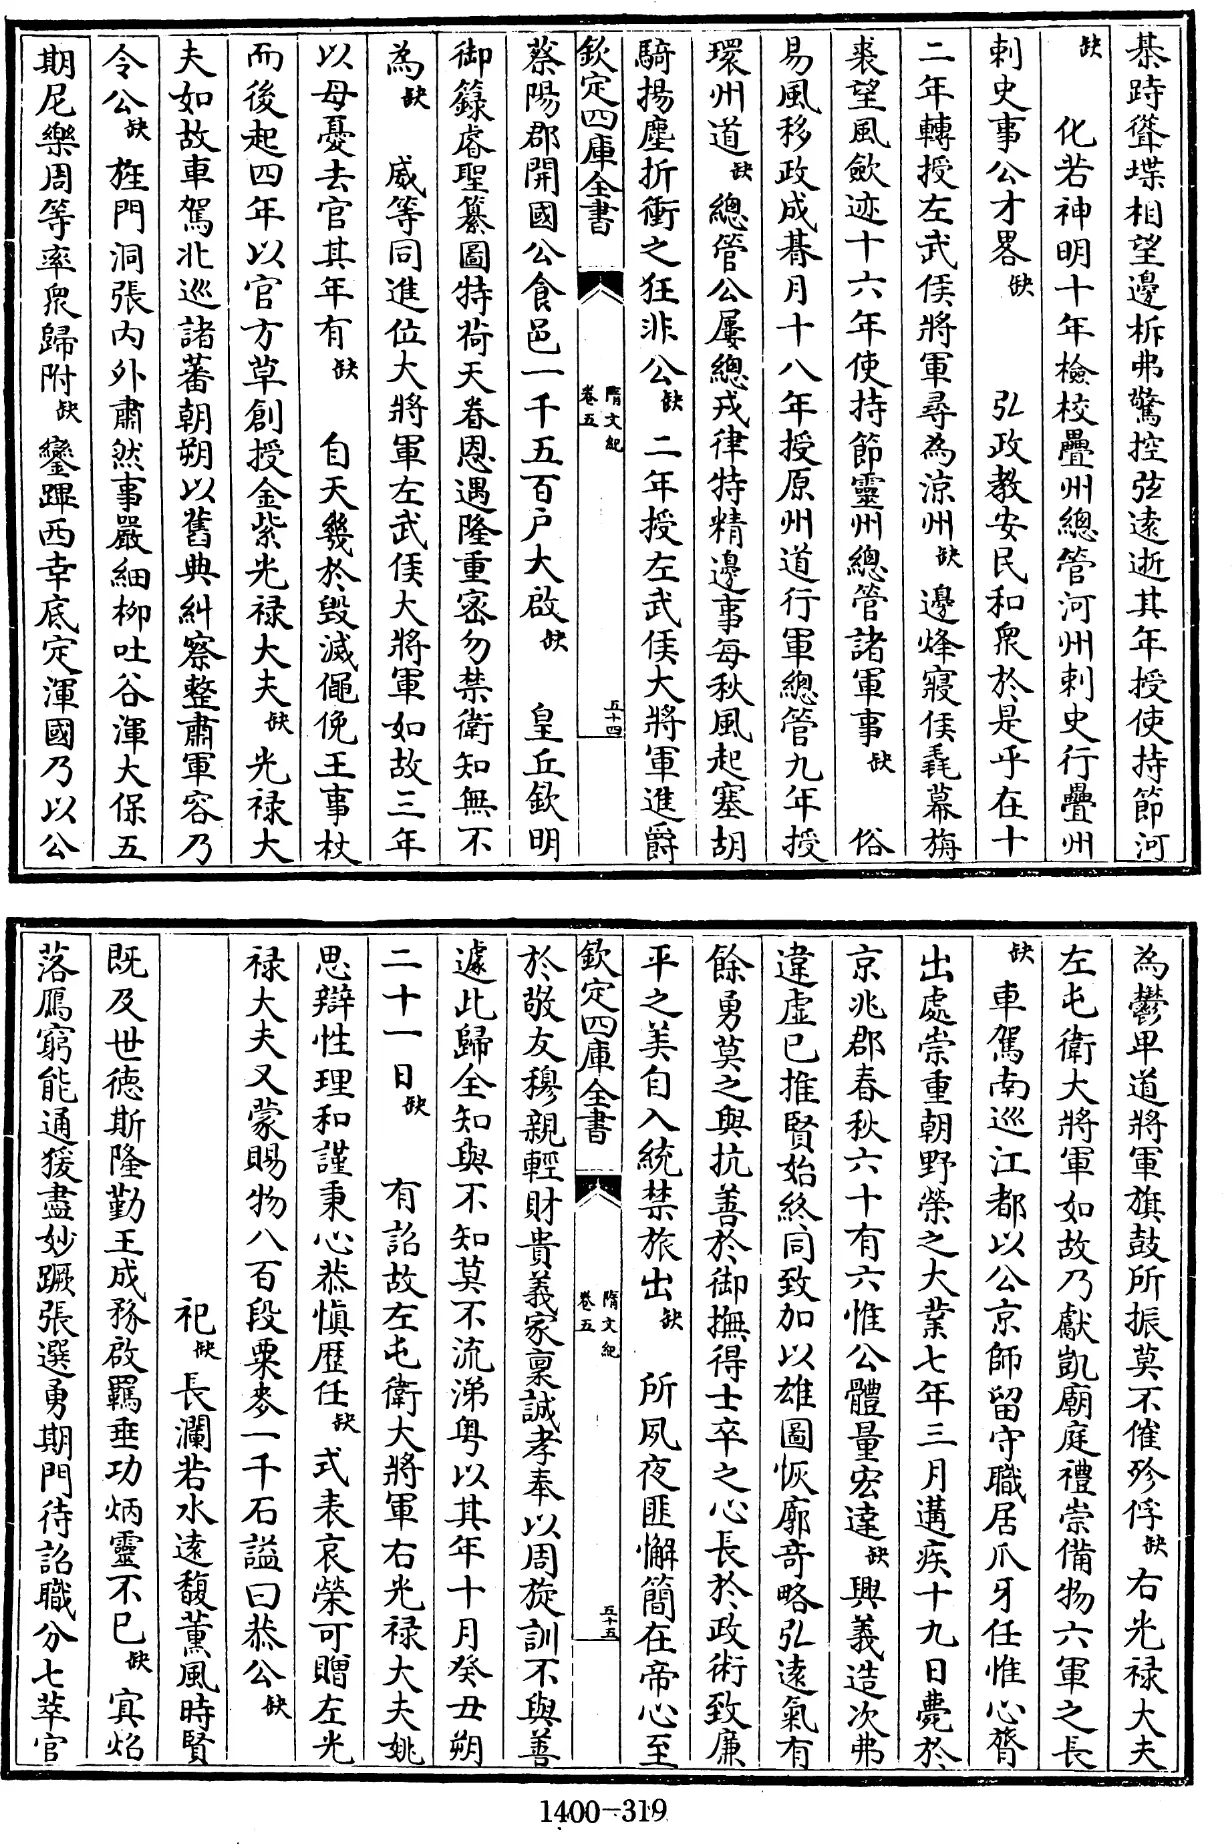 棊跱聳堞相望邊柝弗驚控弦遠逝其年授使持節河
缺化若神明十年檢校疊州總管河州刺史行疊州
刺史事公才畧缺弘政教安民和衆於是乎在十
二年轉授左武侯將軍尋為涼州缺邊烽寢侯毳幕旃
裘望風歛迹十六年使持節靈州總管諸軍事缺俗
易風移政成朞月十八年授原州道行軍總管九年授
環州道缺總管公屢總戎律特精邊事每秋風起塞胡
騎揚塵折衝之狂非公缺二年授左武侯大將軍進爵
欽定四庫全書
隋文紀
卷五
五十四
蔡陽郡開國公食邑一千五百户大啟缺皇丘欽明
御籙睿聖纂圖特荷天眷恩遇隆重密勿禁衛知無不
為缺威等同進位大將軍左武侯大將軍如故三年
以母憂去官其年有缺自天幾於毀滅僶俛王事杖
而後起四年以官方草創授金紫光禄大夫缺光禄大
夫如故車駕北巡諸蕃朝朔以舊典糾察整肅軍容乃
令公缺旌門洞張内外肅然事嚴細柳吐谷渾大保五
期尼樂周等率衆歸附缺鑾蹕西幸底定渾國乃以公
為鬱卑道將軍旗鼓所振莫不催殄俘缺右光禄大夫
左屯衛大將軍如故乃獻凱廟庭禮崇備物六軍之長
缺車駕南巡江都以公京師留守職居爪牙任惟心膂
出處崇重朝野榮之大業七年三月遘疾十九日薨於
京兆郡春秋六十有六惟公體量宏達缺興義造次弗
違虚已推賢始終同致加以雄圖恢廓奇略弘遠氣有
餘勇莫之與抗善於御撫得士卒之心長於政術致廉
平之美自入統禁旅出缺所夙夜匪懈簡在帝心至
欽定四庫全書
隋文紀
卷五
五十五
於敬友穆親輕財貴義家稟誠孝奉以周旋訓不與善
遽此歸全知與不知莫不流涕粤以其年十月癸丑朔
二十一日缺有詔故左屯衛大將軍右光禄大夫姚
思辯性理和謹秉心恭慎歷任缺式表哀榮可贈左光
禄大夫又蒙賜物八百段粟麥一千石謚曰恭公缺
祀缺長瀾若水遠馥薰風時賢
既及世徳斯隆勤王成務啟羈垂功炳靈不已缺寘焰
落鴈窮能通猨盡妙蹶張選勇期門待詔職分七萃官
1400-319